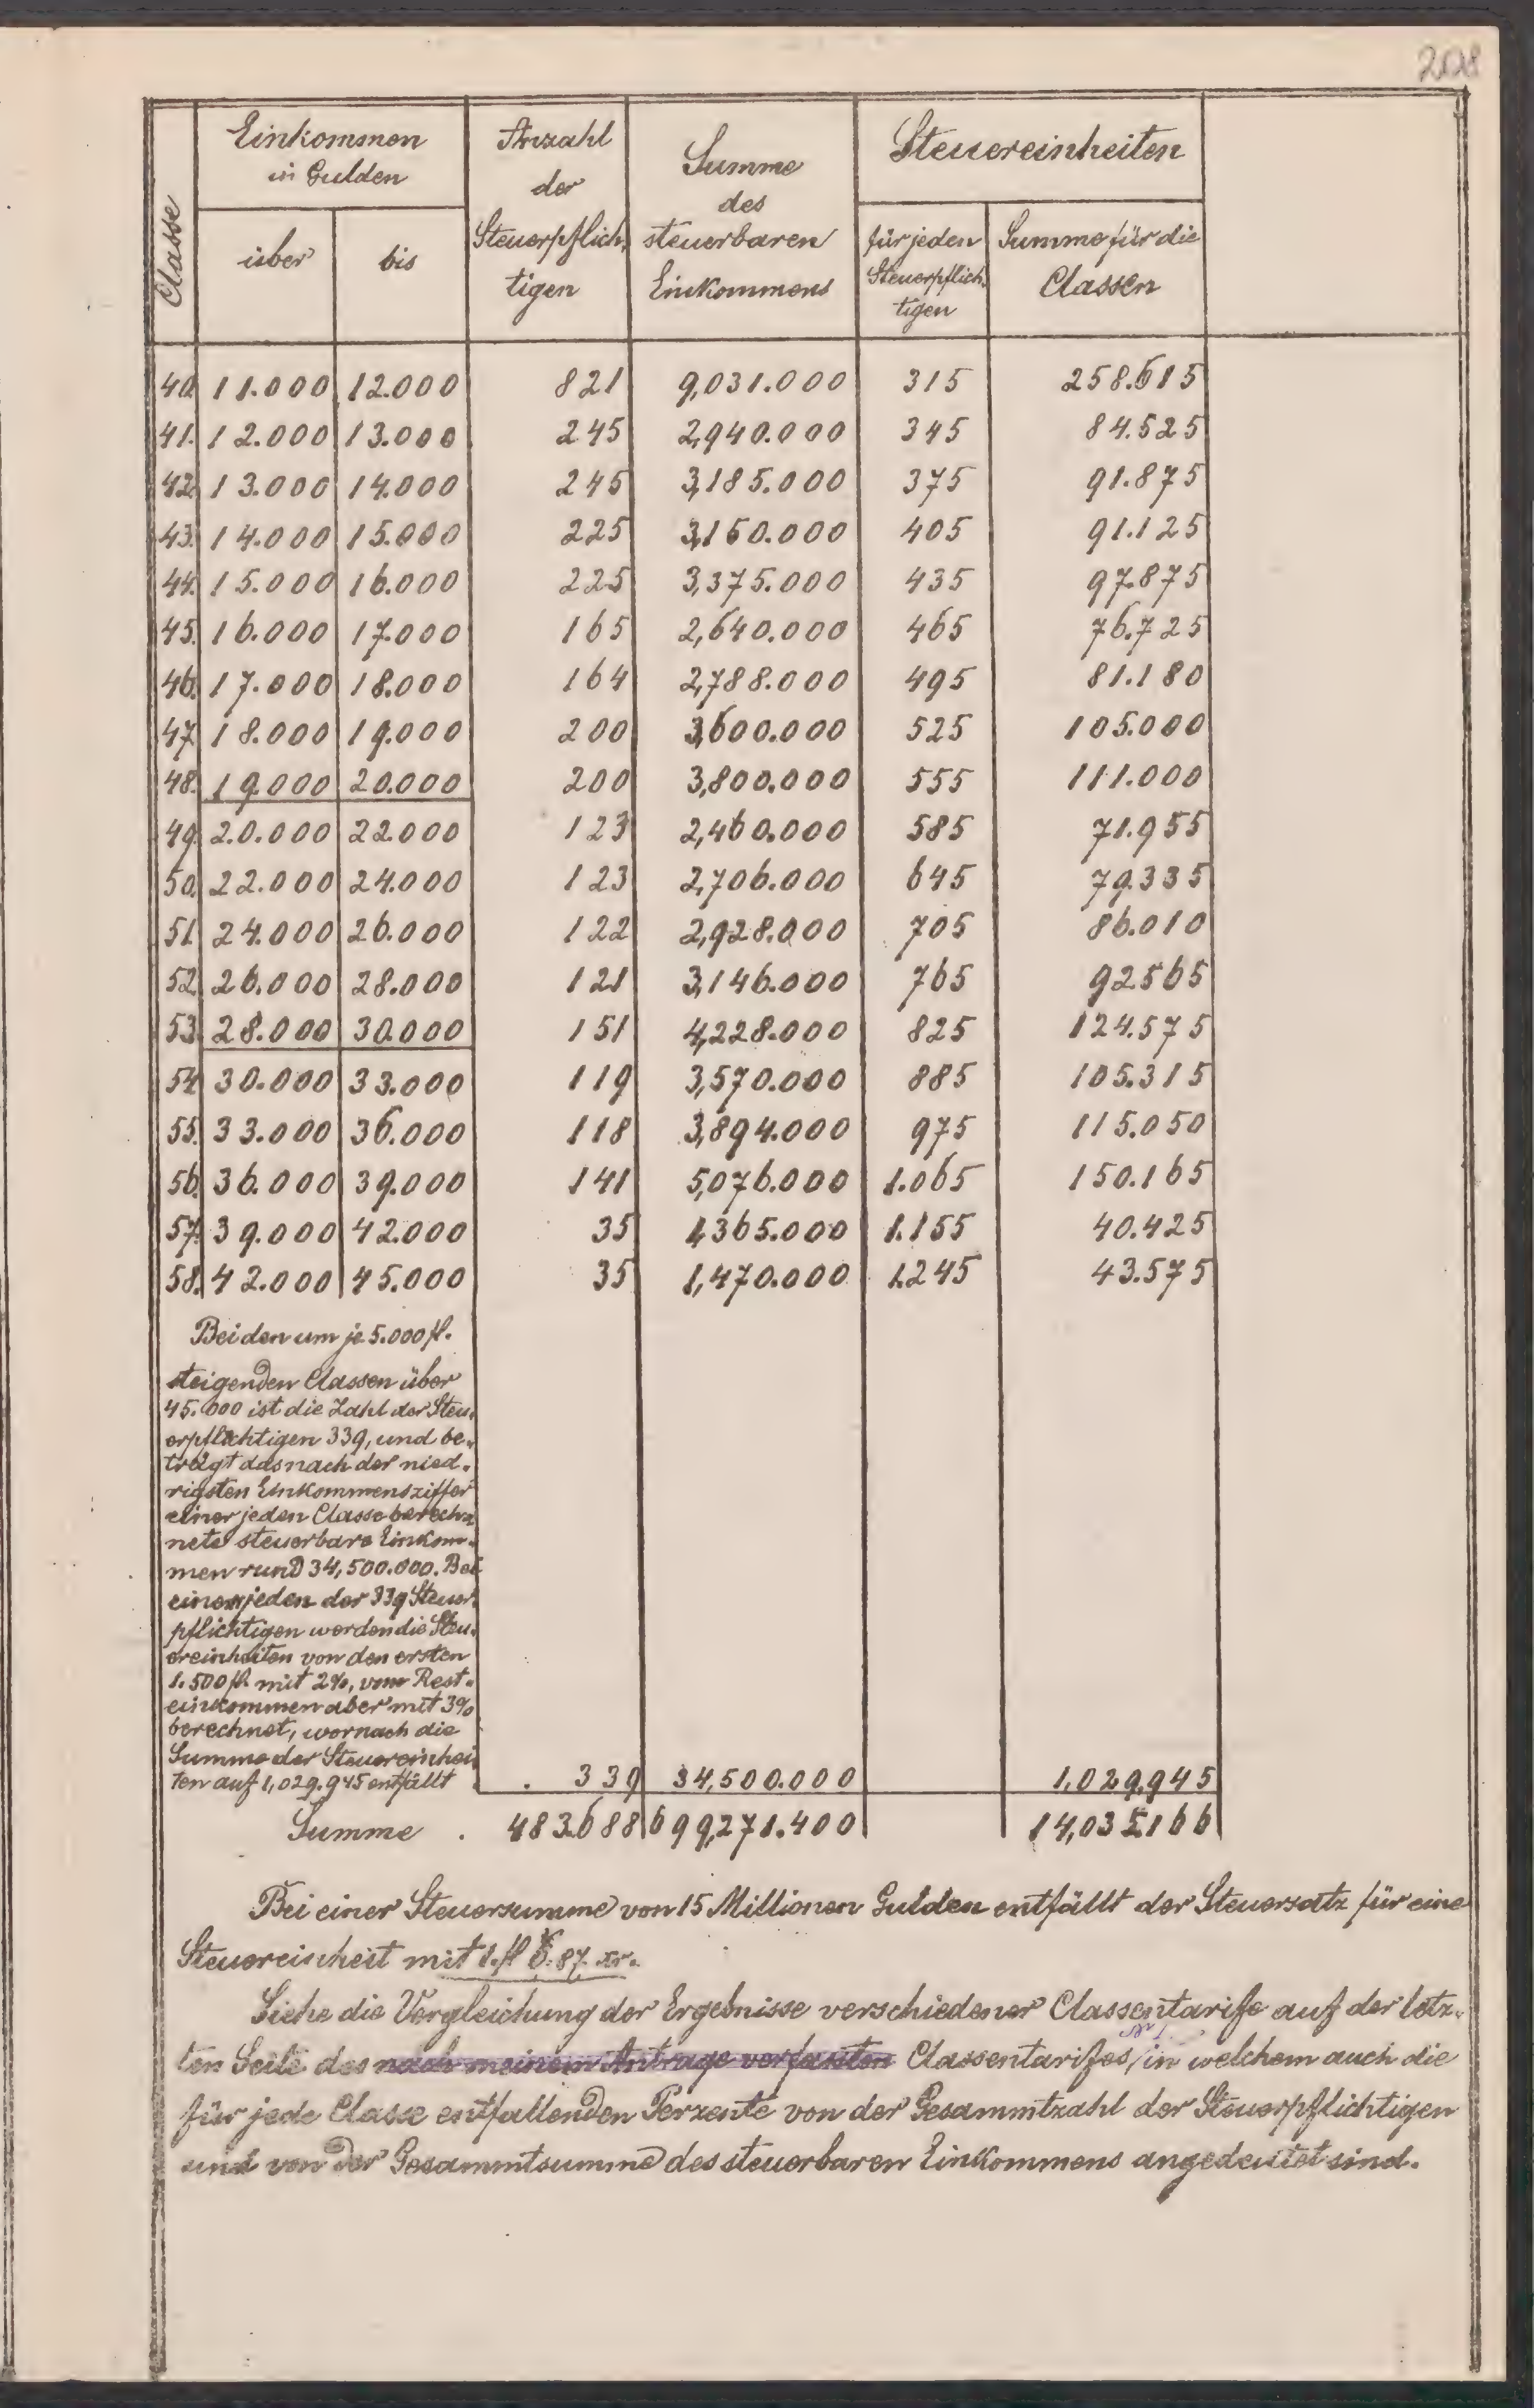 208
Classe
Einkommen
in Gulden
über
bis
Anzahl
der
Steuerpflich-
tigen
Summe
des
steuerbaren
Einkommens
Steuereinheiten
für jeden
Steuerpflich-
tigen
Summe für die
Classen
40. 11.000 12.000 821 9,031.000 315 258.615
41. 12.000 13.000 245 2,940.000 345 84.525
42. 13.000 14.000 245 3,185.000 375 91.875
43. 14.000 15.000 225 3,150.000 405 91.125
44. 15.000 16.000 225 3,375.000 435 97.875
45. 16.000 17.000 165 2,640.000 465 76.725
46. 17.000 18.000 164 2,788.000 495 81.180
47. 18.000 19.000 200 3,600.000 525 105.000
48. 19.000 20.000 200 3,800.000 555 111.000
49. 20.000 22.000 123 2,460.000 585 71.955
50. 22.000 24.000 123 2,706.000 645 79.335
51. 24.000 26.000 122 2,928.000 705 86.010
52. 26.000 28.000 121 3,146.000 765 92565
53. 28.000 30.000 151 4,228.000 825 124.575
54. 30.000 33.000 119 3,570.000 885 105.315
55. 33.000 36.000 118 3,894.000 975 115.050
56. 36.000 39.000 141 5,076.000 1.065 150.165
57. 39.000 42.000 35 1,365.000 1.155 40.425
58. 42.000 45.000 35 1,470.000 1.245 43.575
Bei den um je 5.000 fl.
steigenden Classen über
45.000 ist die Zahl der Steu-
erpflichtigen 339, und be-
trägt das nach der nied-
rigsten Einkommensziffer
einer jeden Classe berech-
nete steuerbare Einkom-
men rund 34,500.000. Bei
einem jeden der 339 Steuer-
pflichtigen werden die Steu-
ereinheiten von den ersten
1.500 fl. mit 2%, vom Rest-
einkommen aber mit 3%
berechnet, wornach die
Summe der Steuereinhei-
ten auf 1,029.945 entfällt . 339 34,500.000 1,029.945
Summe . 483.688 699,271.400 14,035.166
Bei einer Steuersumme von 15 Millionen Gulden entfällt der Steuersatz für eine
Steuereinheit mit 1. fl 6.87. xr.
Siehe die Vergleichung der Ergebnisse verschiedener Classentarife auf der letz-
ten Seite des nach meinem Antrage verfassten Classentarifes, in welchem auch die
für jede Classe entfallenden Perzente von der Gesammtzahl der Steuerpflichtigen
und von der Gesammtsumme des steuerbaren Einkommens angedeutet sind.